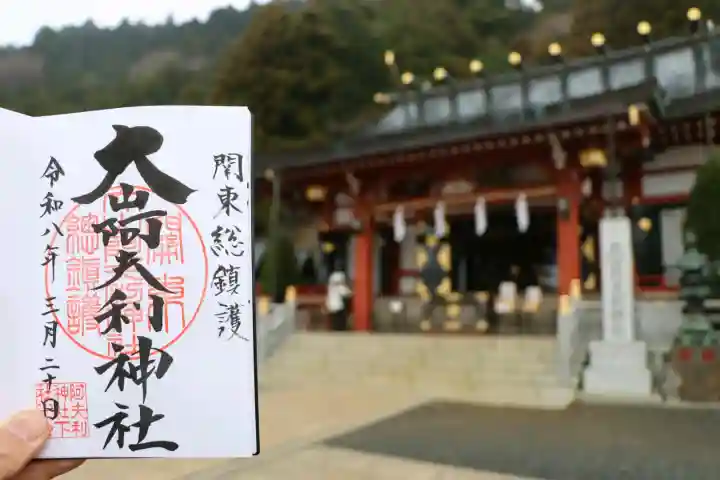 関東総鎮護
大山阿夫利神社
令和八年三月二十日
関東
総鎮護
阿夫利
神社下